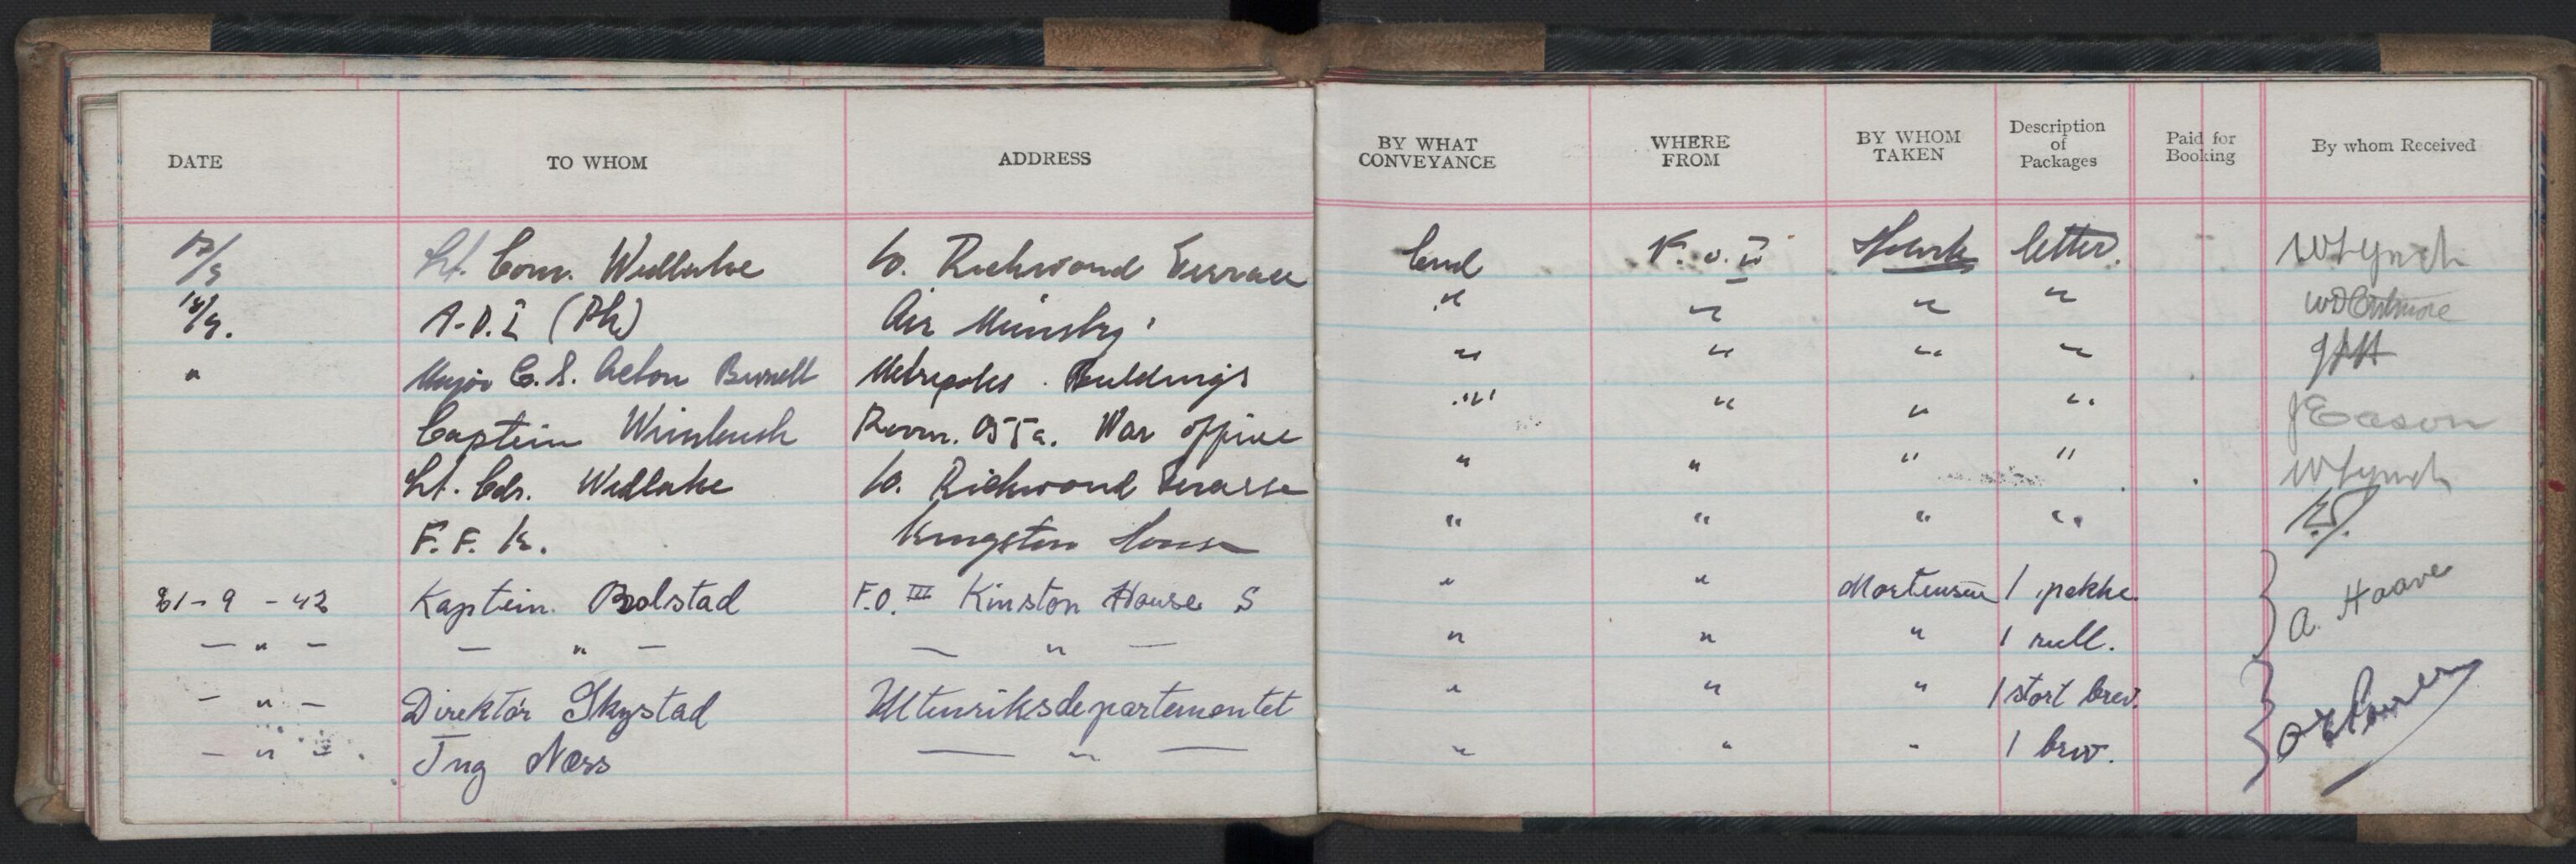 DATE TO WHOM ADDRESS BY WHAT CONVEYANCE WHERE FROM BY WHOM TAKEN Description of Packages Paid for Booking By whom Received
17/9 Lt. Com. Widlake 10. Richmond Terrace F.O. IV letter. W Lynch
18/9. A.D.I (Ph) Air Ministry " " " "
" Major C.S. Acton Burnell Metropoles Buildings " " " "
Captein Wimbush Room. 055a. War Office " " " " J Eason
Lt. Cdr. Widlake 10. Richmond Terasse " " " " W Lynch
F. F. K. Kingston House " " " "
21-9-42 Kaptein Bolstad F.O. III Kinston House S " " Mortensen 1 pakke. A. Haave
— " — — " — — " — " " " 1 rull.
— " — Direktör Skystad Utenriksdepartementet " " " 1 stort brev.
— " — Ing Næss — " — " " " 1 brev.